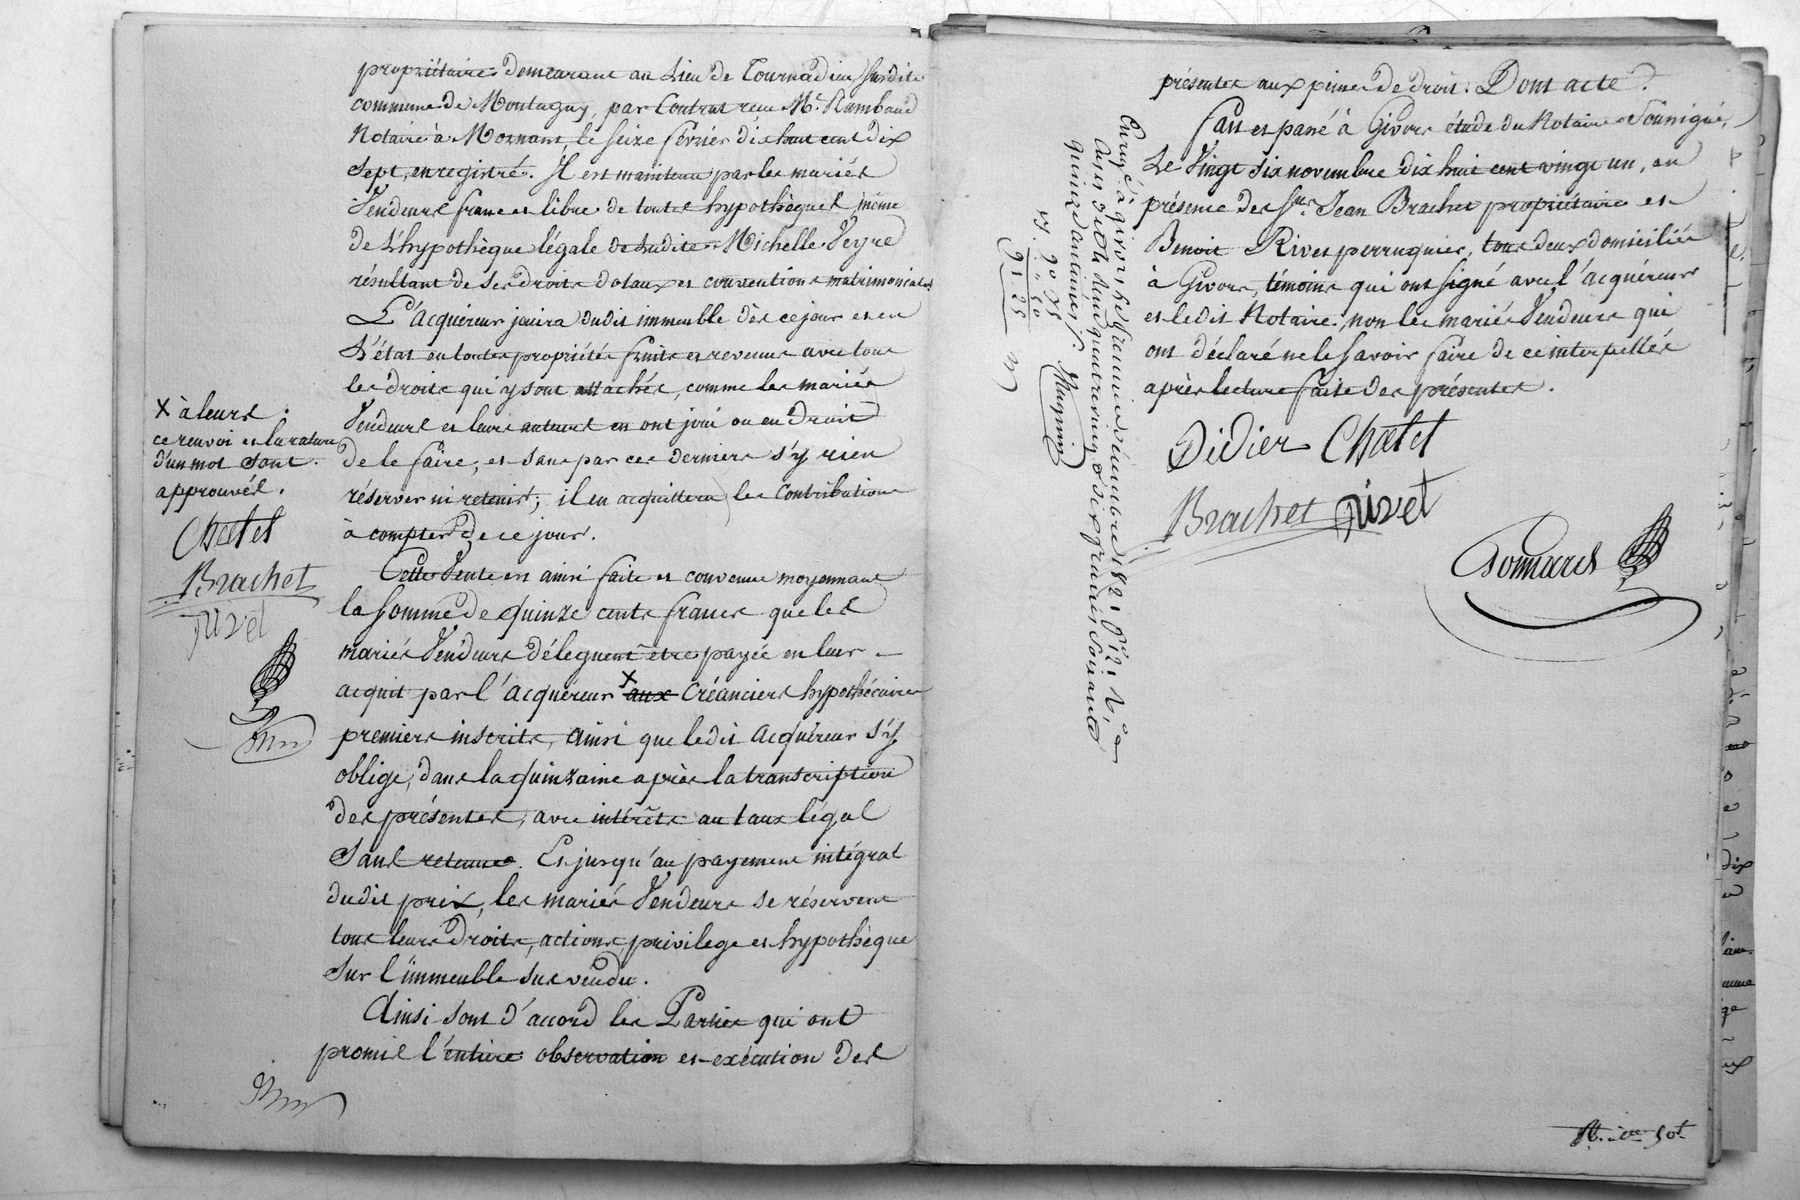 propriétaire demeurant au Lieu de Tournadieu susdite
commune de Montagny, par Contrat reçu Me. Rambaud
Notaire à Mornant, le seize février dix huit cent dix
sept, enregistré. Il est maintenu par les mariés
Vendeurs franc et libre de toutes hypothèques même
de L'hypothèque légale de Ladite Michelle Veyre
résultant de ses droits dotaux et conventions matrimoniales.
L'acquéreur jouira dudit immeuble dès ce jour et en
L'état en toutes propriétés fruits et revenus avec tous
les droits qui y sont attachés, comme les mariés
Vendeurs et leurs auteurs en ont joui ou eu Droit
de le faire, et sans par ces derniers s'y rien
réserver ni retenir; il en acquittera les Contributions
à compter de ce jour.
Cette Vente est ainsi faite et convenue moyennant
la somme de quinze cents francs que les
mariés Vendeurs délèguent être payée en leur
acquit par l'acquéreur X aux Créanciers hypothécaires
premiers inscrits, ainsi que ledit acquéreur s'y
oblige, dans la quinzaine après la transcription
des présentes, avec intérêts au taux légal
sans retenue. Et jusqu'au payement intégral
dudit prix, les mariés Vendeurs se réservent
tous leurs droits, actions, privilege et hypothèque
sur l'immeuble sus vendu.
Ainsi sont d'accord les Parties qui ont
promis l'entière observation et exécution des
X à leurs.
ce renvoi et la rature
d'un mot sont
approuvés.
Chatel
Brachet
rivet
présentes aux peines de droit. Dont acte.
Fait et passé à Givors étude du Notaire soussigné,
Le Vingt six novembre dix huit cent vingt un, en
présence des Srs. Jean Brachet propriétaire et
Benoit Rivet perruquier, tous deux domiciliés
à Givors, témoins qui ont signé avec l'acquéreur
et ledit Notaire, non les mariés Vendeurs qui
ont déclaré ne le savoir faire de ce interpellés
après lecture faite des présentes.
Didier Chatel
Brachet rivet
Enregé à givors le premier décembre 1821.
quatre vingt seize francs soixante
quinze centimes.
90.75
91.25